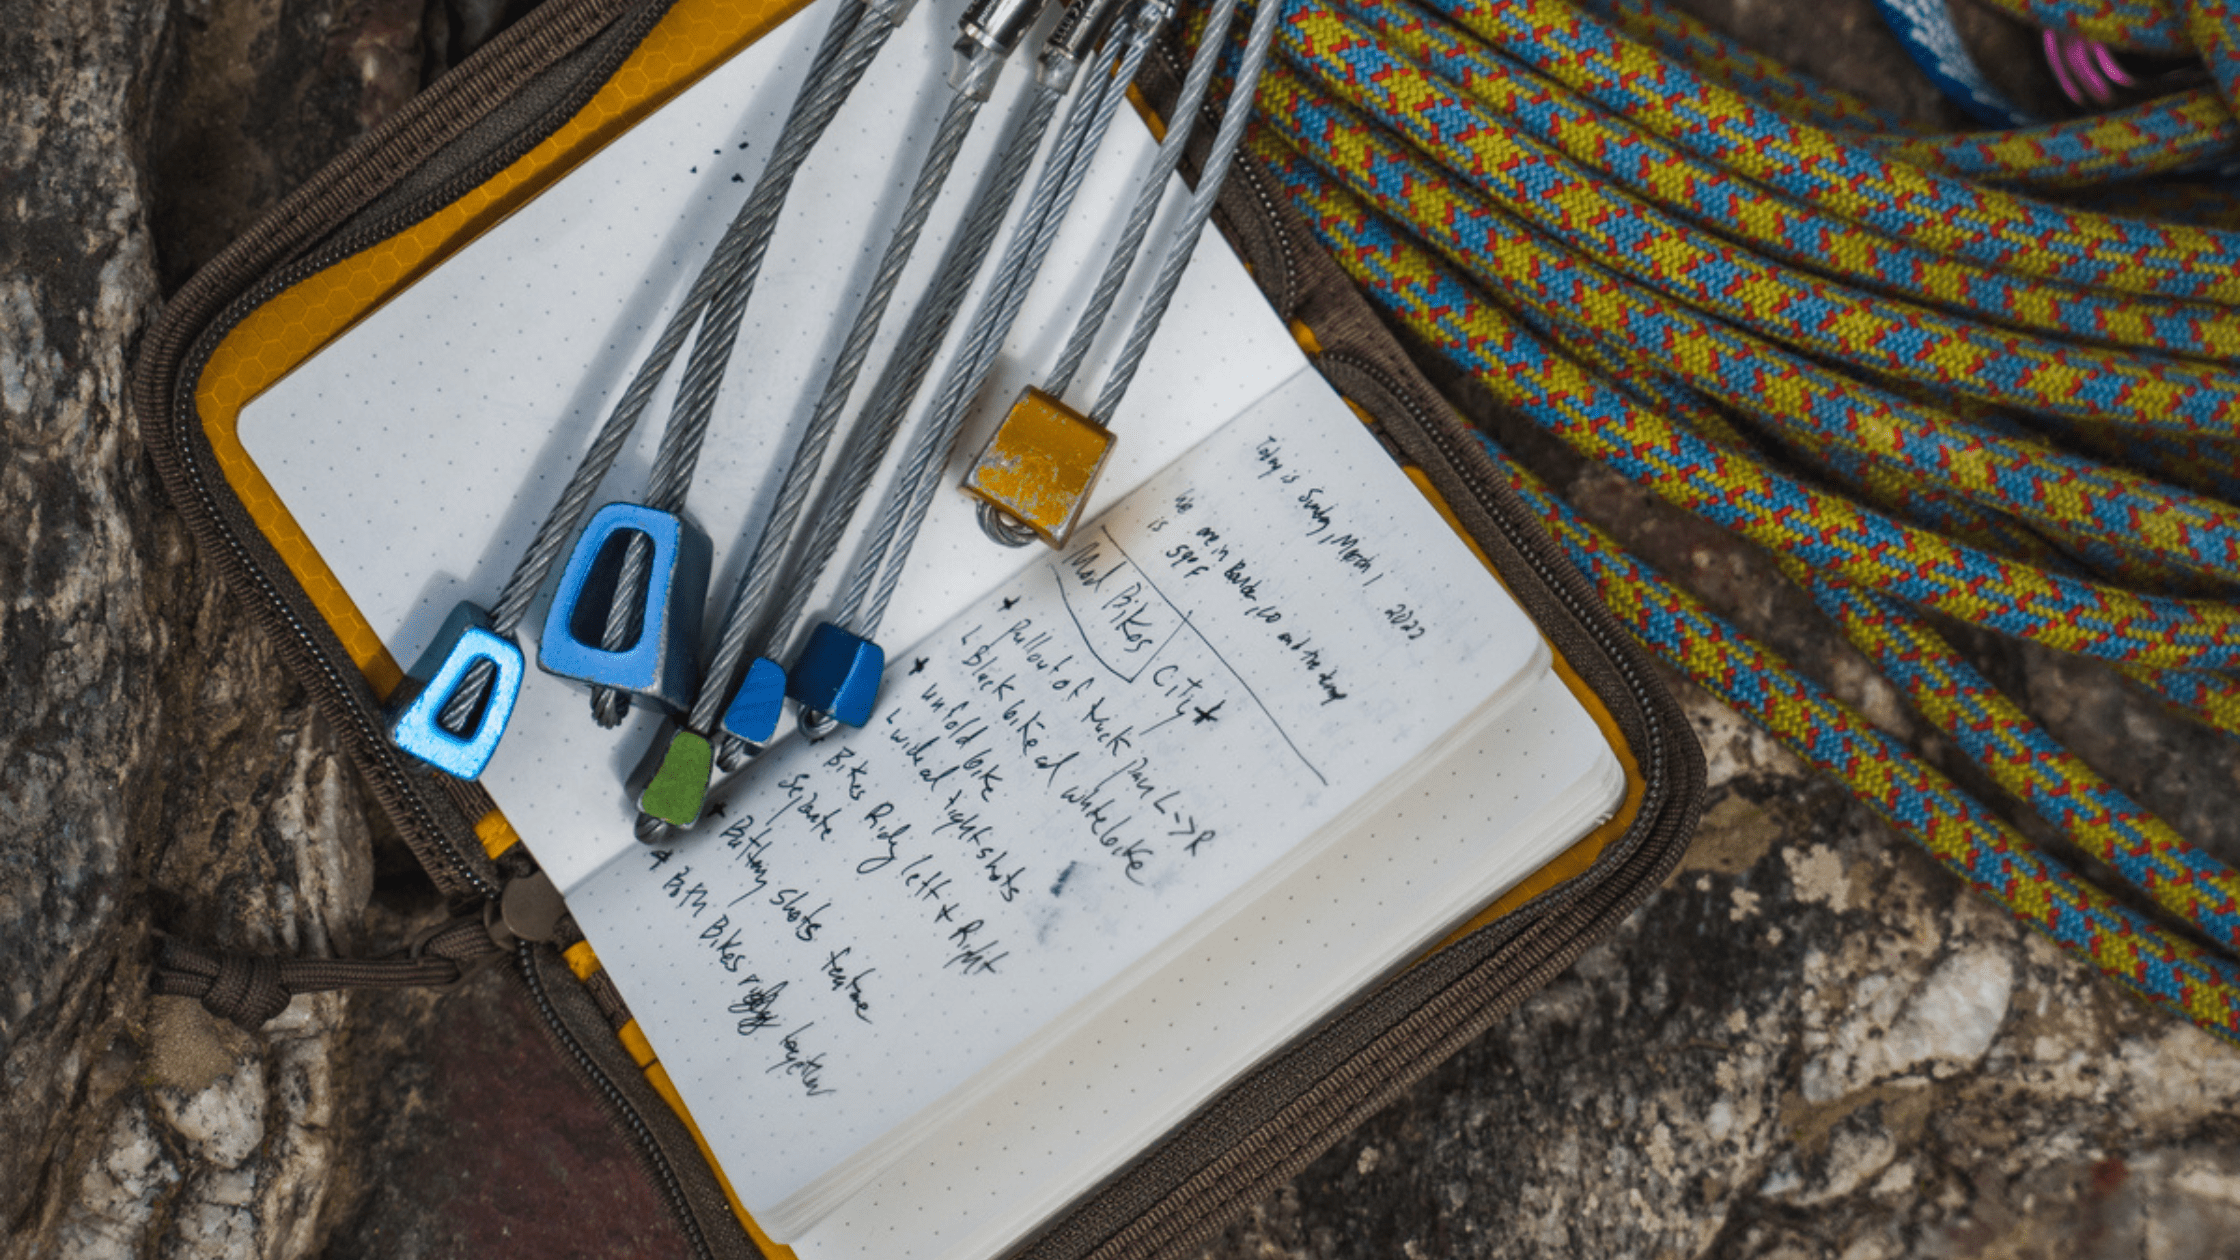 Today is Sunday, March 1 2022
We are in Boulder, CO and the temp
is 59°F
Mod Bikes City★
★ Pullout of truck pan L->R
L Black bike and white bike
★ unfold bike
L wide and tight shots
★ Bikes Riding left + Right
Separate
★ Battery shots feature
★ Both Bikes together